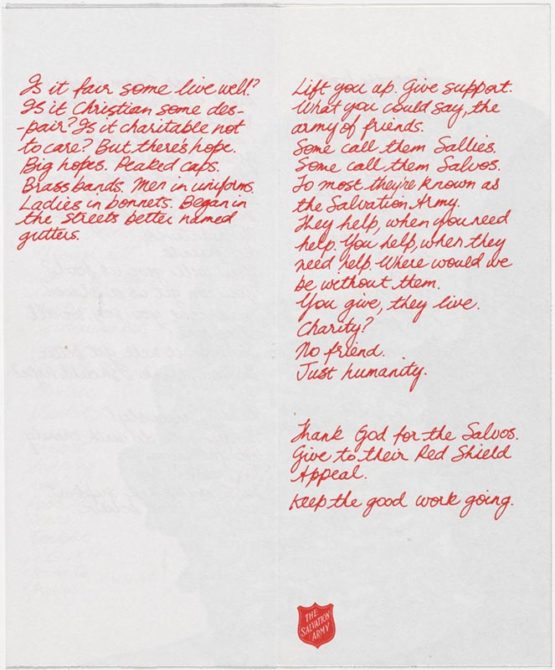 Is it fair some live well?
Is it Christian some des-
-pair? Is it charitable not
to care? But there's hope.
Big hopes. Peaked caps.
Brass bands. Men in uniforms.
Ladies in bonnets. Began in
the streets better named
gutters.
Lift you up. Give support.
What you could say, the
army of friends.
Some call them Sallies.
Some call them Salvos.
To most they're known as
the Salvation Army.
They help, when you need
help. You help, when they
need help. Where would we
be without them.
You give, they live.
Charity?
No friend.
Just humanity.
Thank God for the Salvos.
Give to their Red Shield
Appeal.
Keep the good work going.
THE
SALVATION
ARMY